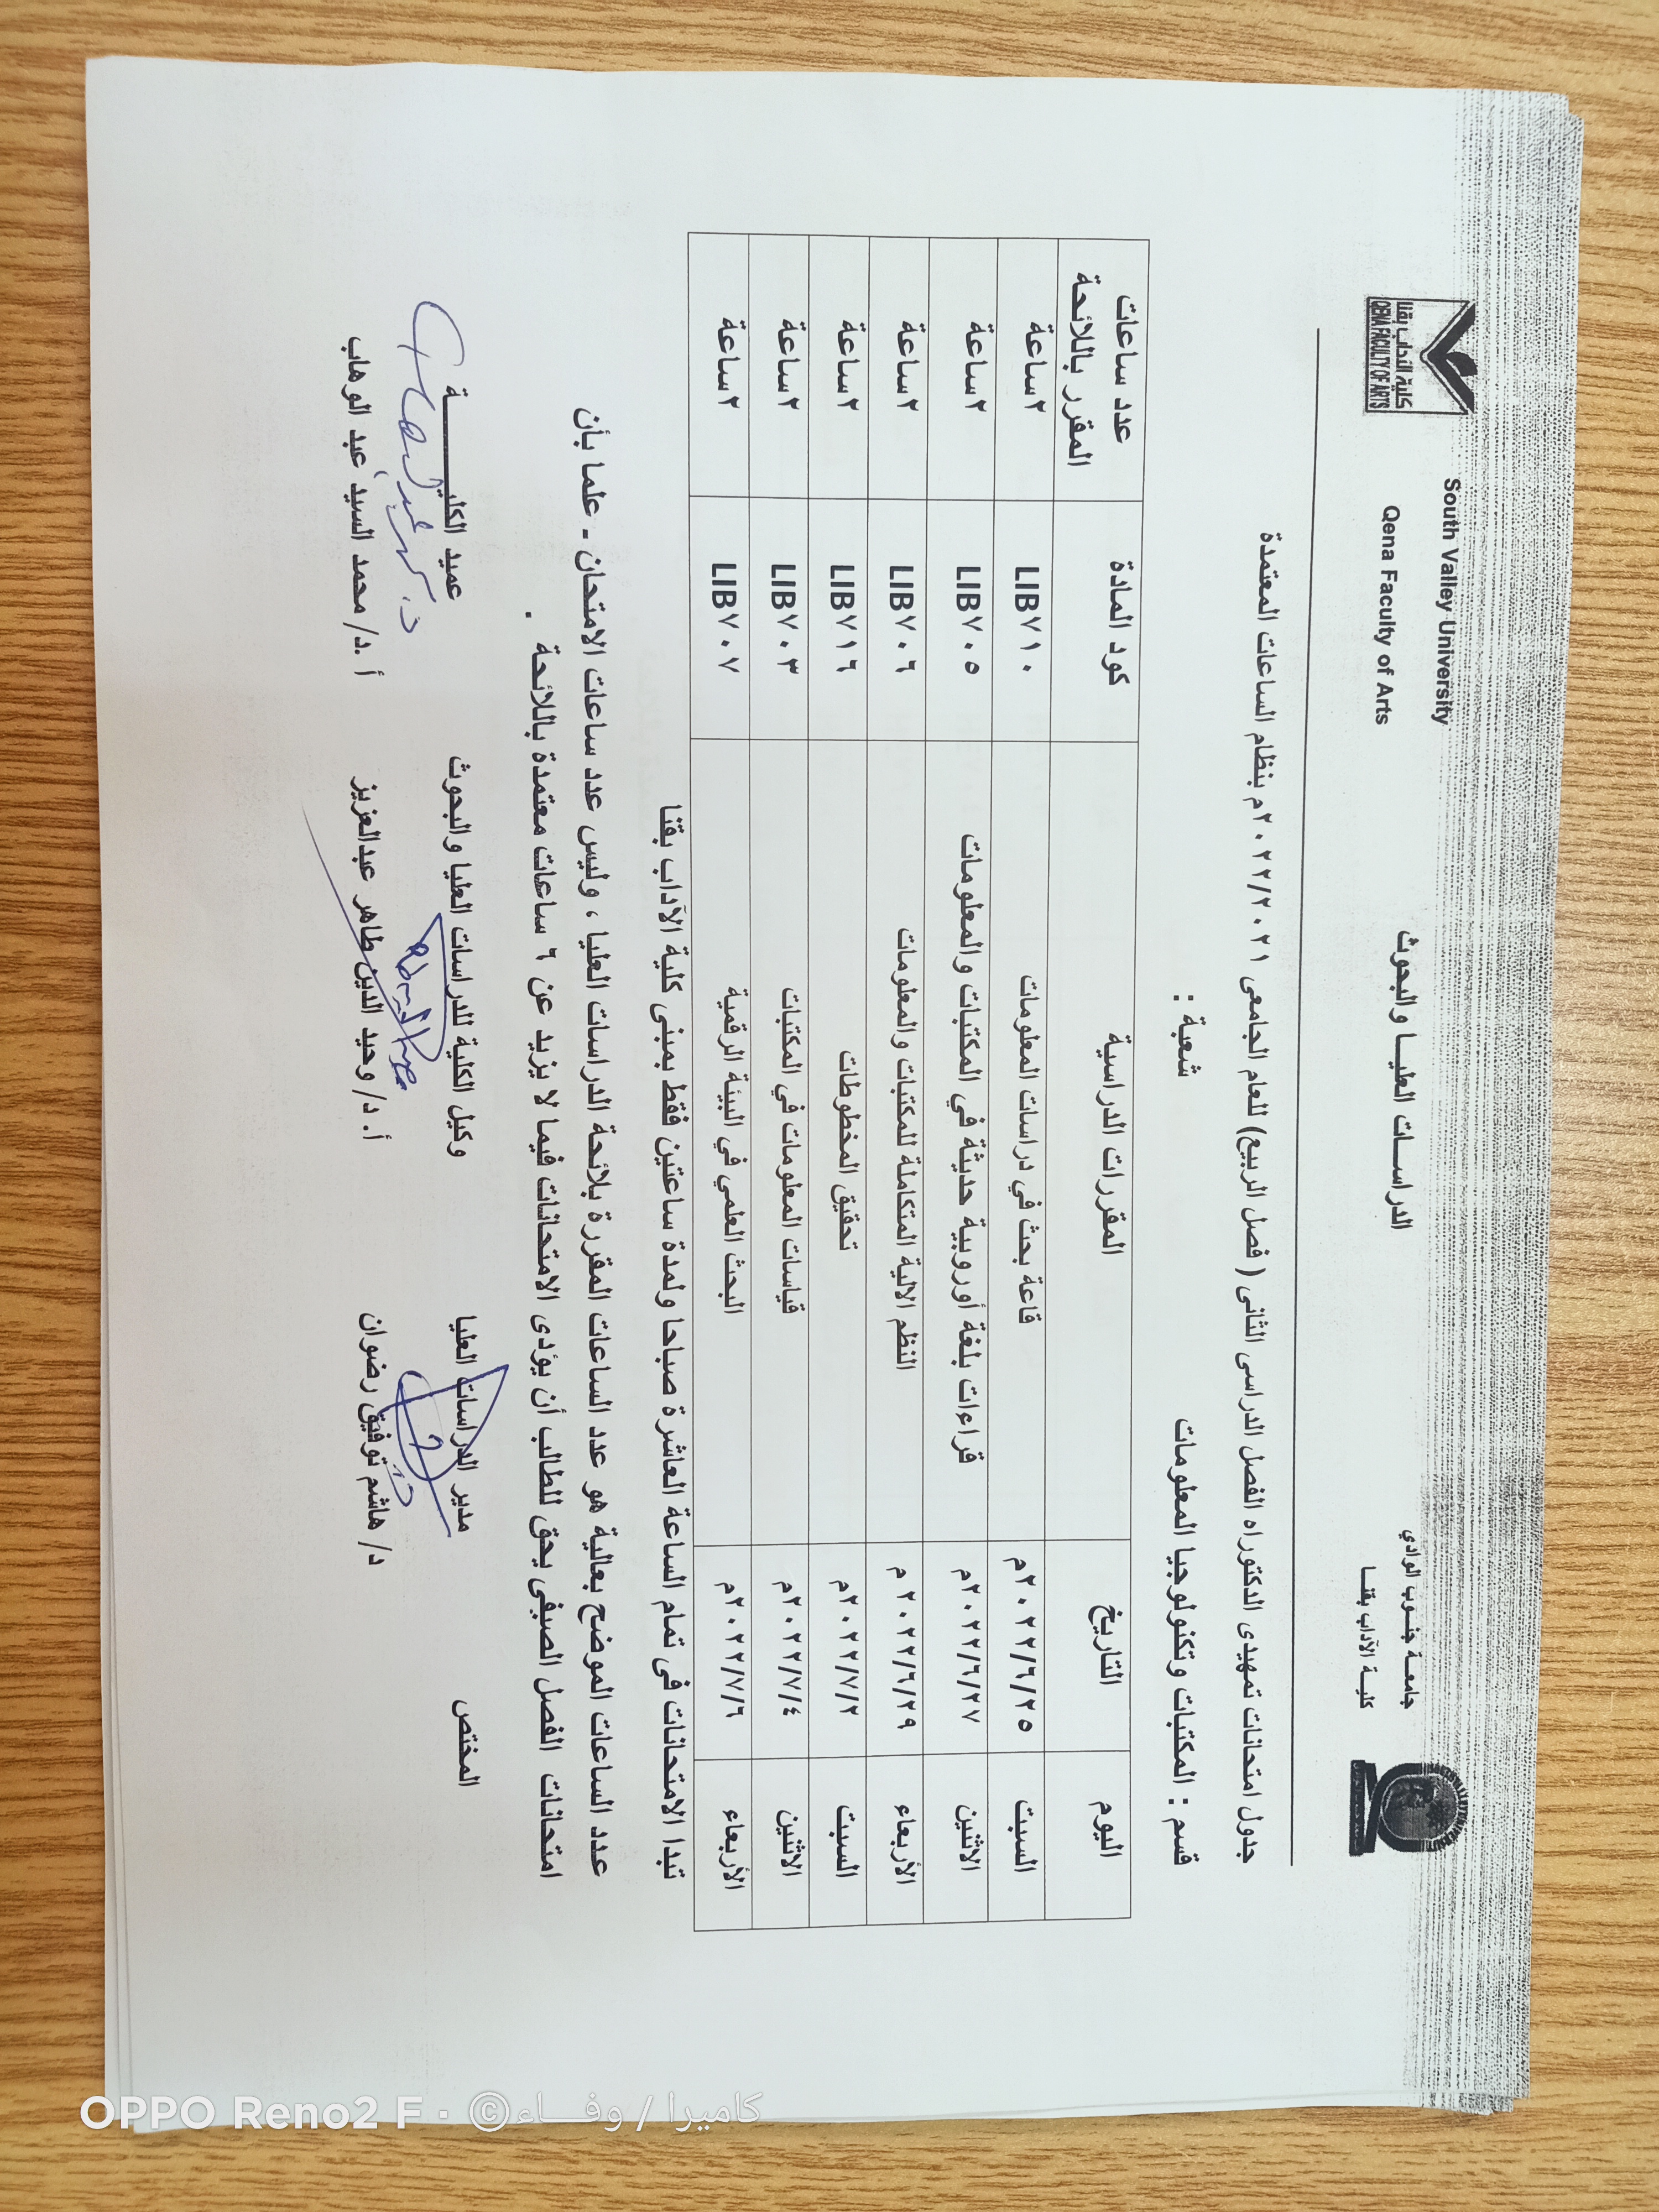 جامعــة جنــوب الوادي
كليــة الآداب بقنــا
الدراســات العليــا والبحوث
South Valley University
Qena Faculty of Arts
كلية الآداب بقنا
QENA FACULTY OF ARTS
جدول امتحانات تمهيدى الدكتوراه الفصل الدراسى الثانى ( فصل الربيع) للعام الجامعى ٢٠٢٢/٢٠٢١م بنظام الساعات المعتمدة
قسم : المكتبات وتكنولوجيا المعلومات شعبة :
اليوم التاريخ المقررات الدراسية كود المادة عدد ساعات المقرر باللائحة
السبت ٢٠٢٢/٦/٢٥م قاعة بحث في دراسات المعلومات LIB٧١٠ ٢ساعة
الاثنين ٢٠٢٢/٦/٢٧م قراءات بلغة أوروبية حديثة في المكتبات والمعلومات LIB٧٠٥ ٢ساعة
الأربعاء ٢٠٢٢/٦/٢٩م النظم الالية المتكاملة للمكتبات والمعلومات LIB٧٠٦ ٢ساعة
السبت ٢٠٢٢/٧/٢م تحقيق المخطوطات LIB٧١٦ ٢ساعة
الاثنين ٢٠٢٢/٧/٤م قياسات المعلومات في المكتبات LIB٧٠٣ ٢ساعة
الأربعاء ٢٠٢٢/٧/٦م البحث العلمي في البيئة الرقمية LIB٧٠٧ ٢ساعة
تبدا الامتحانات فى تمام الساعة العاشرة صباحا ولمدة ساعتين فقط بمبنى كلية الآداب بقنا
عدد الساعات الموضح بعالية هو عدد الساعات المقررة بلائحة الدراسات العليا ، وليس عدد ساعات الامتحان ـ علما بأن
امتحانات الفصل الصيفى يحق للطالب أن يؤدى الامتحانات فيما لا يزيد عن ٦ ساعات معتمدة باللائحة .
المختص مدير الدراسات العليا وكيل الكلية للدراسات العليا والبحوث عميد الكليـــــــــة
د/ هاشم توفيق رضوان أ. د/ وحيد الدين طاهر عبدالعزيز أ .د/ محمد السيد عبد الوهاب
OPPO Reno2 F · © كاميرا / وفـــاء